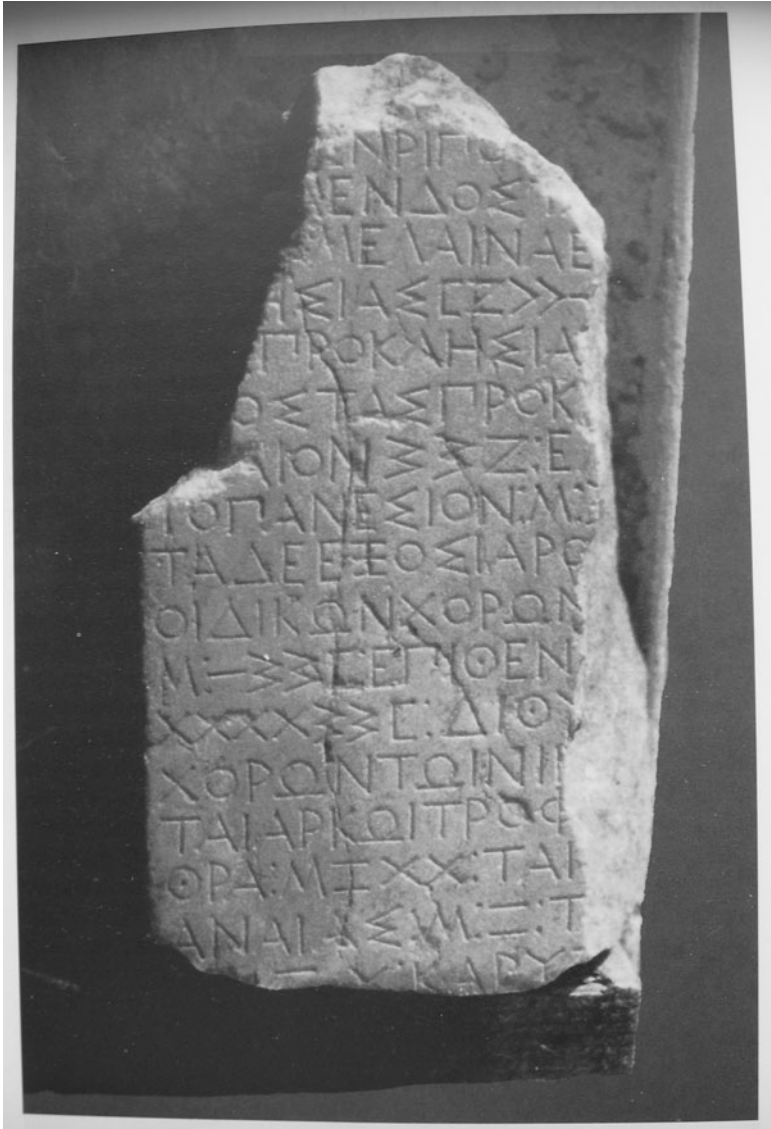 ΕΝΡΙΠΟ
ΜΕΝΔΟΣΤ
ΜΕΛΑΙΝΑΕ
ΗΣΙΑΣ
ΠΡΟΚΛΗΣΙΑ
ΟΣΤΑΣΠΡΟΚ
ΑΙΟΝ Ζ:Ε
ΤΟΠΑΝΕΣΙΟΝ:Μ:
ΤΑΔΕΕΞΟΣΙΑΡΟ
ΟΙΔΙΚΩΝΧΟΡΩΝ
ΕΠΙΘΕΝ
ΧΧΧΧ ΔΙΘΥ
ΧΟΡΩΝΤΩΙΝΙΚ
ΤΑΙΑΡΚΩΙΤΡΟΦ
ΘΡΑ:Μ ΧΧ:ΤΑΙ
ΑΝΑΙΑΣ:Μ: Τ
ΚΑΡΥ